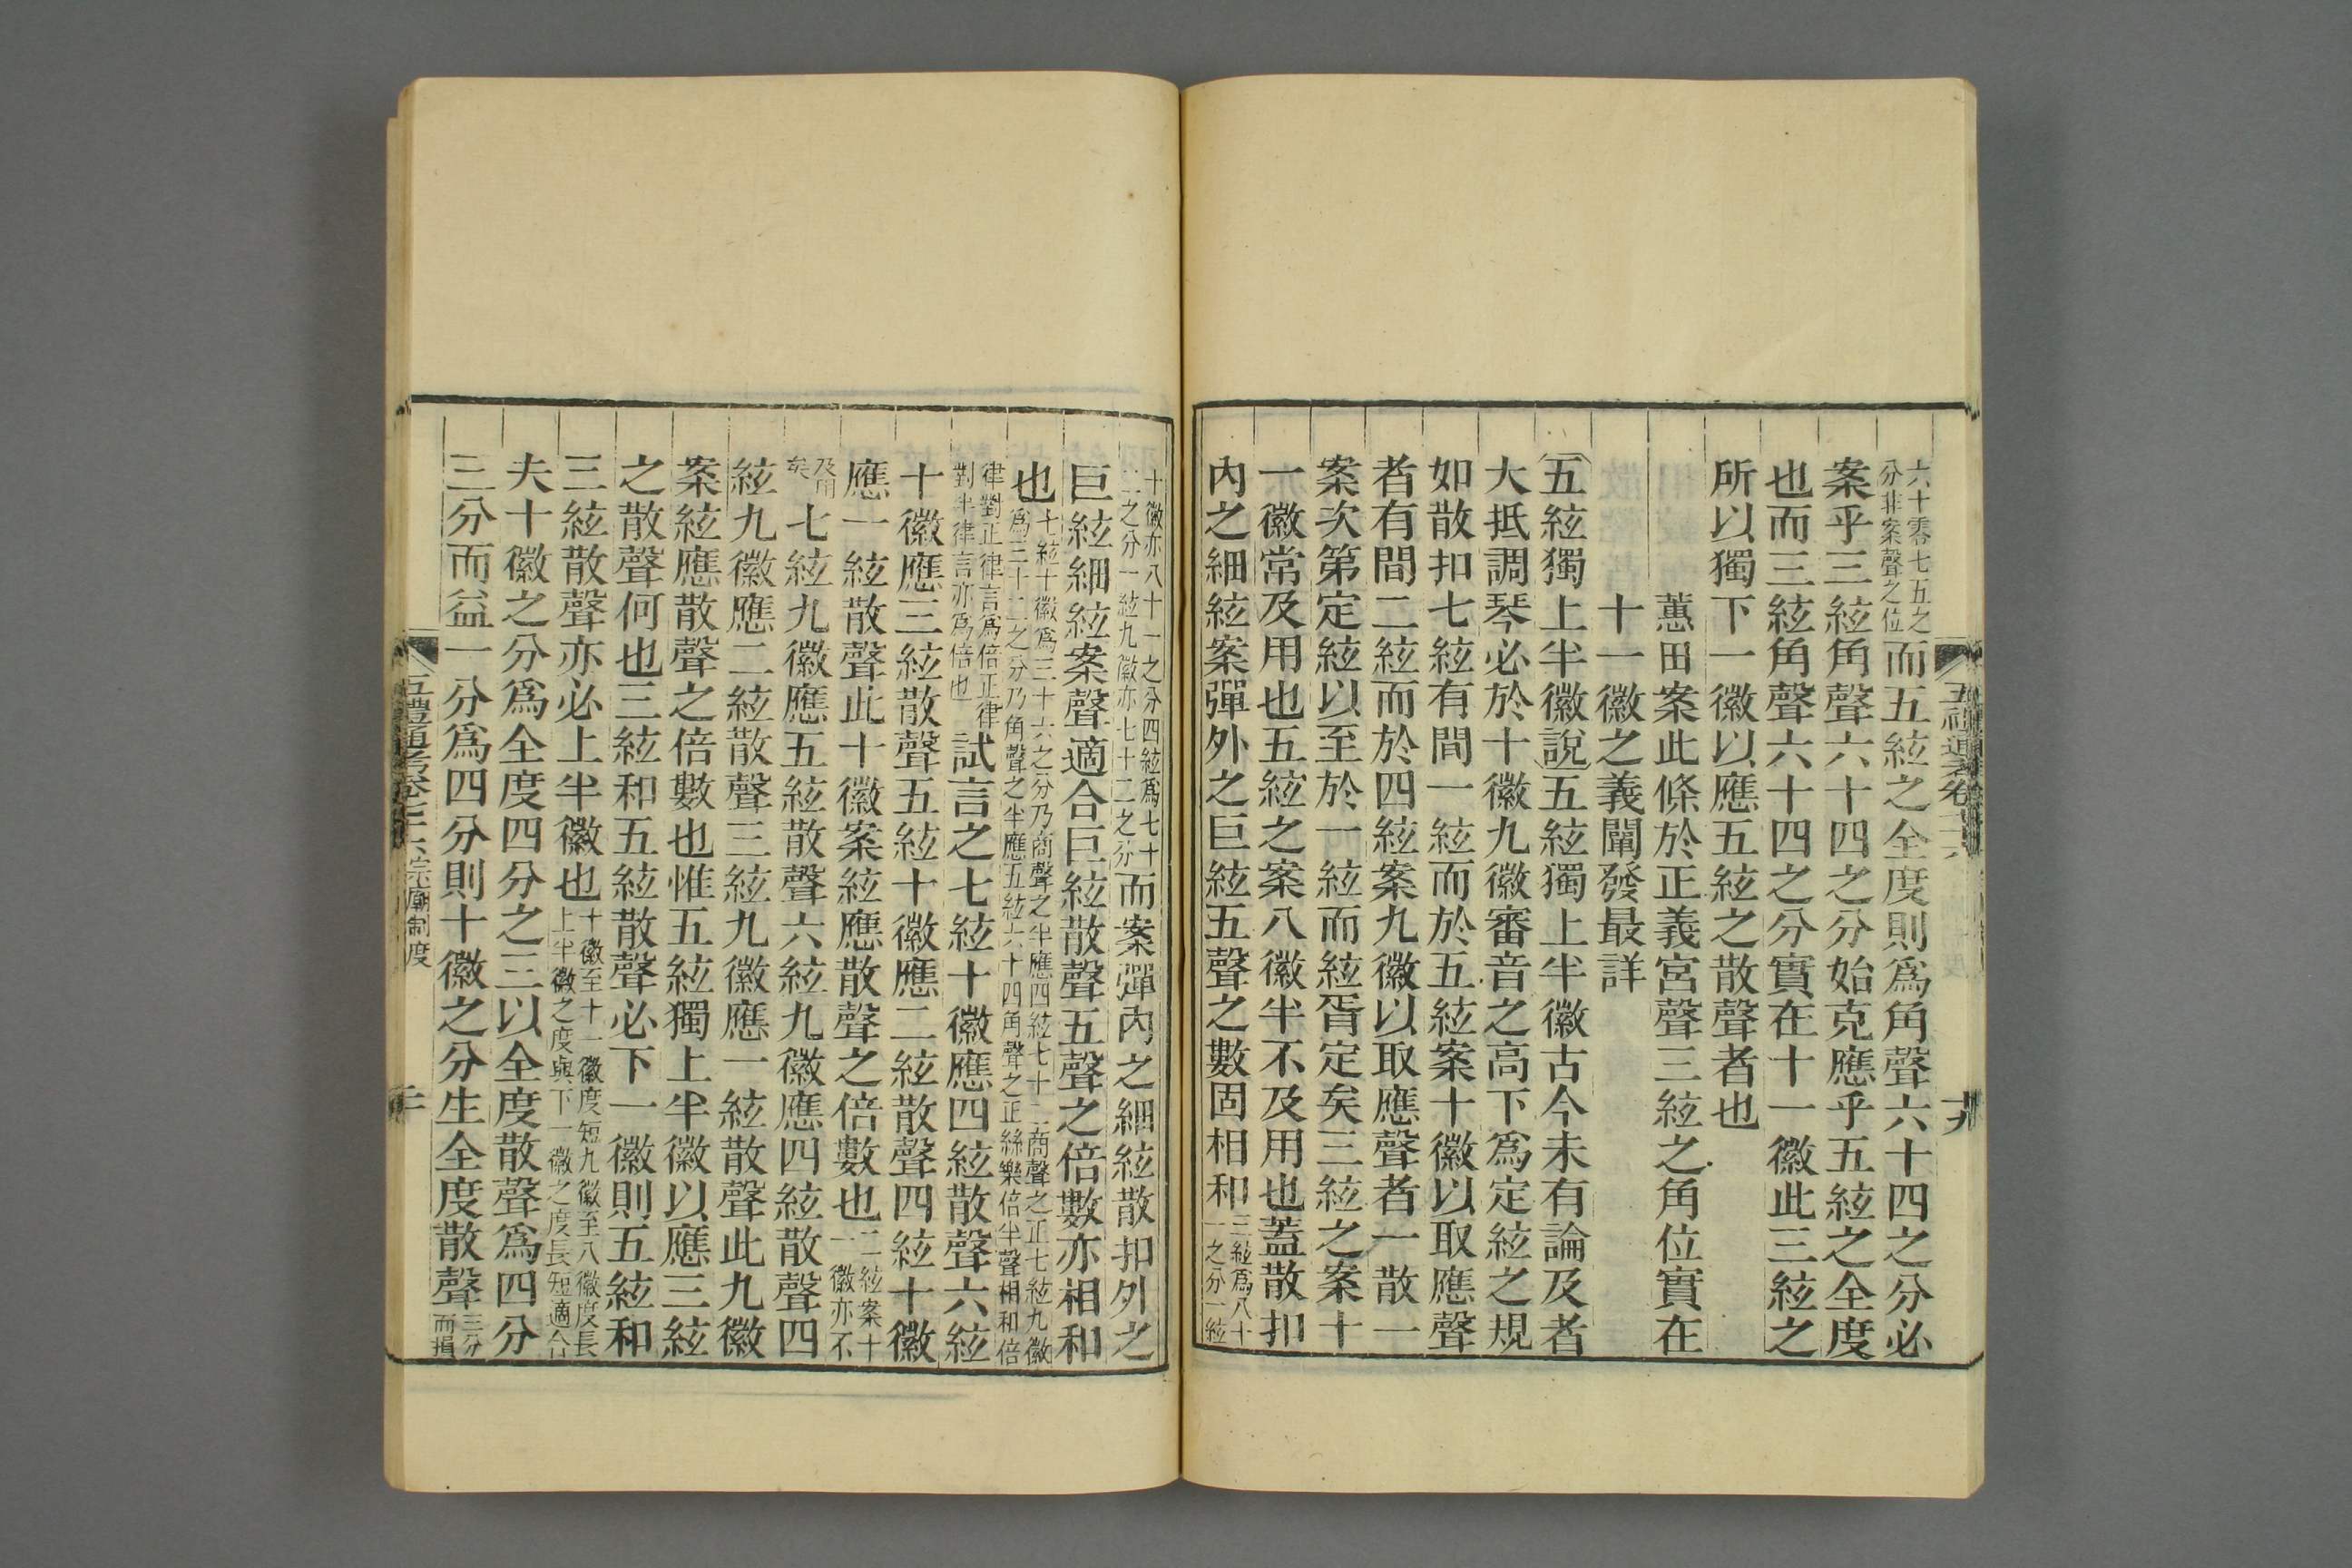 六十零七五之分非案聲之位而五絃之全度則爲角聲六十四之分必
案乎三絃角聲六十四之分始克應乎五絃之全度
也而三絃角聲六十四之分實在十一徽此三絃之
所以獨下一徽以應五絃之散聲者也
蕙田案此條於正義宮聲三絃之角位實在
十一徽之義闡發最詳
五絃獨上半徽說五絃獨上半徽古今未有論及者
大抵調琴必於十徽九徽審音之高下爲定絃之規
如散扣七絃有間一絃而於五絃案十徽以取應聲
者有間二絃而於四絃案九徽以取應聲者一散一
案次第定絃以至於一絃而絃胥定矣三絃之案十
一徽常及用也五絃之案八徽半不及用也蓋散扣
內之細絃案彈外之巨絃五聲之數固相和三絃爲八十一之分一絃
十徽亦八十一之分四絃爲七十二之分一絃九徽亦七十二之分而案彈內之細絃散扣外之
巨絃細絃案聲適合巨絃散聲五聲之倍數亦相和
也七絃十徽爲三十六之分乃商聲之半應四絃七十二商聲之正七絃九徽爲三十二之分乃角聲之半應五絃六十四角聲之正絲樂倍半聲相和倍
律對正律言爲倍正律對半律言亦爲倍也試言之七絃十徽應四絃散聲六絃
十徽應三絃散聲五絃十徽應二絃散聲四絃十徽
應一絃散聲此十徽案絃應散聲之倍數也二絃案十一徽亦不
及用矣七絃九徽應五絃散聲六絃九徽應四絃散聲四
絃九徽應二絃散聲三絃九徽應一絃散聲此九徽
案絃應散聲之倍數也惟五絃獨上半徽以應三絃
之散聲何也三絃和五絃散聲必下一徽則五絃和
三絃散聲亦必上半徽也十徽至十一徽度短九徽至八徽度長上半徽之度與下一徽之度長短適合
夫十徽之分爲全度四分之三以全度散聲爲四分
三分而益一分爲四分則十徽之分生全度散聲三分而損
五禮通考卷七十六 宗廟制度
十九